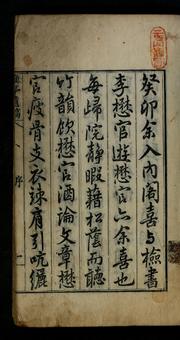 癸卯余入內閣喜与檢書
李懋官遊懋官亦余喜也
每歸院靜暇藉松蔭而聽
竹韻飲懋官酒論文章懋
官瘦骨支衣竦肩引吭纚
序
一